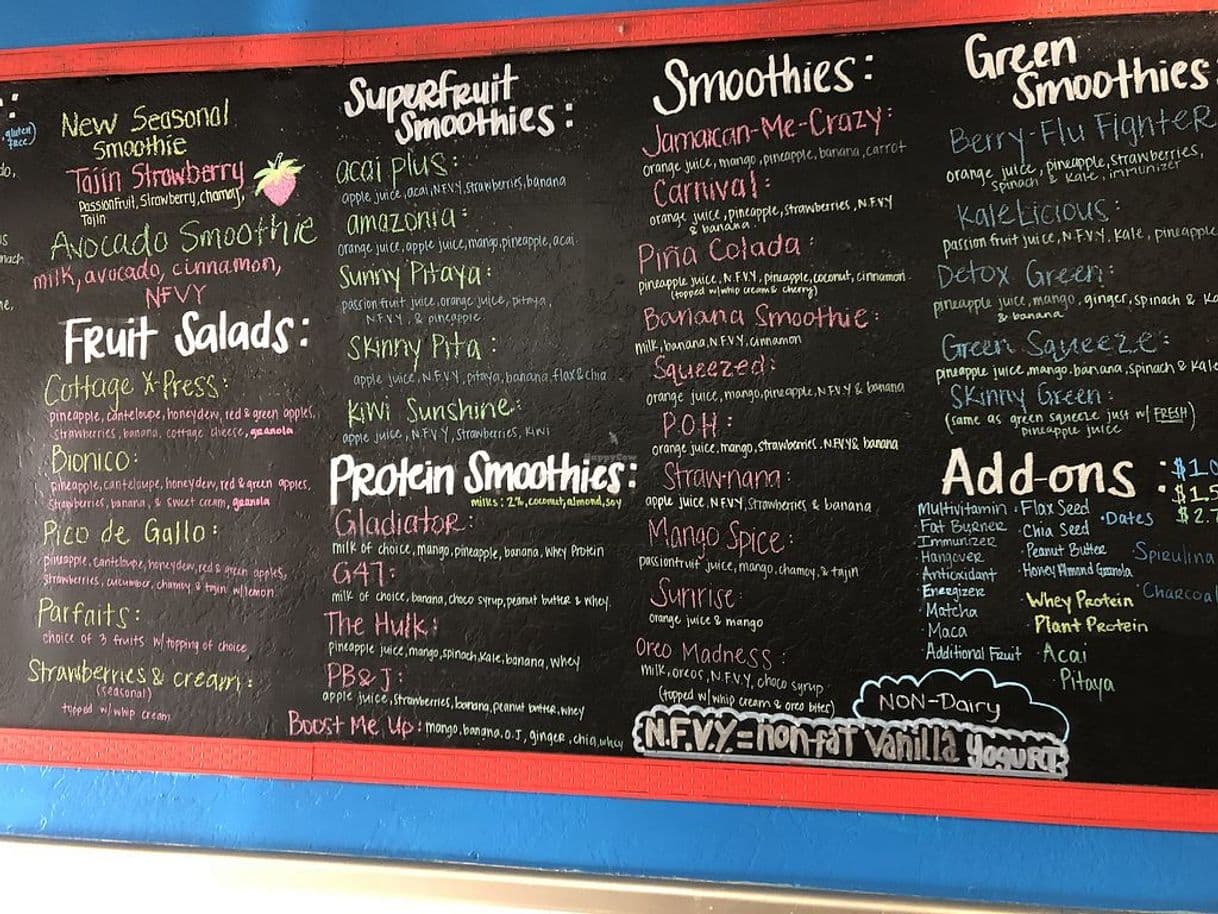 :
gluten
free)
New Seasonal
Smoothie
Tajin Strawberry
Passionfruit, Strawberry, chamoy,
Tajin
Avocado Smoothie
milk, avocado, cinnamon,
NFVY
Fruit Salads:
Cottage X-Press:
pineapple, canteloupe, honeydew, red & green apples,
strawberries, banana, cottage cheese, granola
Bionico:
pineapple, canteloupe, honeydew, red & green apples,
strawberries, banana, & sweet cream, granola
Pico de Gallo:
pineapple, canteloupe, honeydew, red & green apples,
strawberries, cucumber, chamoy & tajin w/lemon
Parfaits:
choice of 3 fruits w/topping of choice
Strawberries & cream:
(seasonal)
topped w/ whip cream
Superfruit
Smoothies:
acai plus:
apple juice, acai, N.F.V.Y, strawberries, banana
amazonia:
orange juice, apple juice, mango, pineapple, acai
Sunny Pitaya:
passion fruit juice, orange juice, pitaya,
N.F.V.Y, & pineapple
Skinny Pita:
apple juice, N.F.V.Y, pitaya, banana, flax & chia
Kiwi Sunshine:
apple juice, N.F.V.Y, strawberries, kiwi
Protein Smoothies:
milks: 2%, coconut, almond, soy
Gladiator:
milk of choice, mango, pineapple, banana, whey Protein
G47:
milk of choice, banana, choco syrup, peanut butter & whey.
The Hulk:
pineapple juice, mango, spinach, kale, banana, whey
PB&J:
apple juice, strawberries, banana, peanut butter, whey
Boost Me Up: mango, banana, O.J, ginger, chia, whey
Smoothies:
Jamaican-Me-Crazy:
orange juice, mango, pineapple, banana, carrot
Carnival:
orange juice, pineapple, strawberries, N.F.V.Y
& banana
Piña Colada:
pineapple juice, N.F.V.Y, pineapple, coconut, cinnamon
(topped w/whip cream & cherry)
Banana Smoothie:
milk, banana, N.F.V.Y, cinnamon
Squeezed:
orange juice, mango, pineapple, N.F.V.Y & banana
P.O.H:
orange juice, mango, strawberries, N.F.V.Y & banana
Straw-nana:
apple juice, N.F.V.Y, strawberries & banana
Mango Spice:
passionfruit juice, mango, chamoy, & tajin
Sunrise:
orange juice & mango
Oreo Madness:
milk, oreos, N.F.V.Y, choco syrup
(topped w/ whip cream & oreo bites)
NON-Dairy
N.F.V.Y. = non-fat vanilla yogurt
Green
Smoothies:
Berry-Flu Fighter
orange juice, pineapple, strawberries,
spinach & kale, immunizer
Kalelicious:
passion fruit juice, N.F.V.Y, kale, pineapple
Detox Green:
pineapple juice, mango, ginger, spinach &
& banana
Green Squeeze:
pineapple juice, mango, banana, spinach & kale
Skinny Green:
(same as green squeeze just w/ FRESH)
pineapple juice
Add-ons:
Multivitamin
Fat Burner
Immunizer
Hangover
Antioxidant
Energizer
· Matcha
· Maca
· Additional Fruit
· Flax Seed
· Chia Seed
· Peanut Butter
· Honey Almond Granola
· Whey Protein
· Plant Protein
· Acai
· Pitaya
· Dates
· Spirulina
· Charcoal